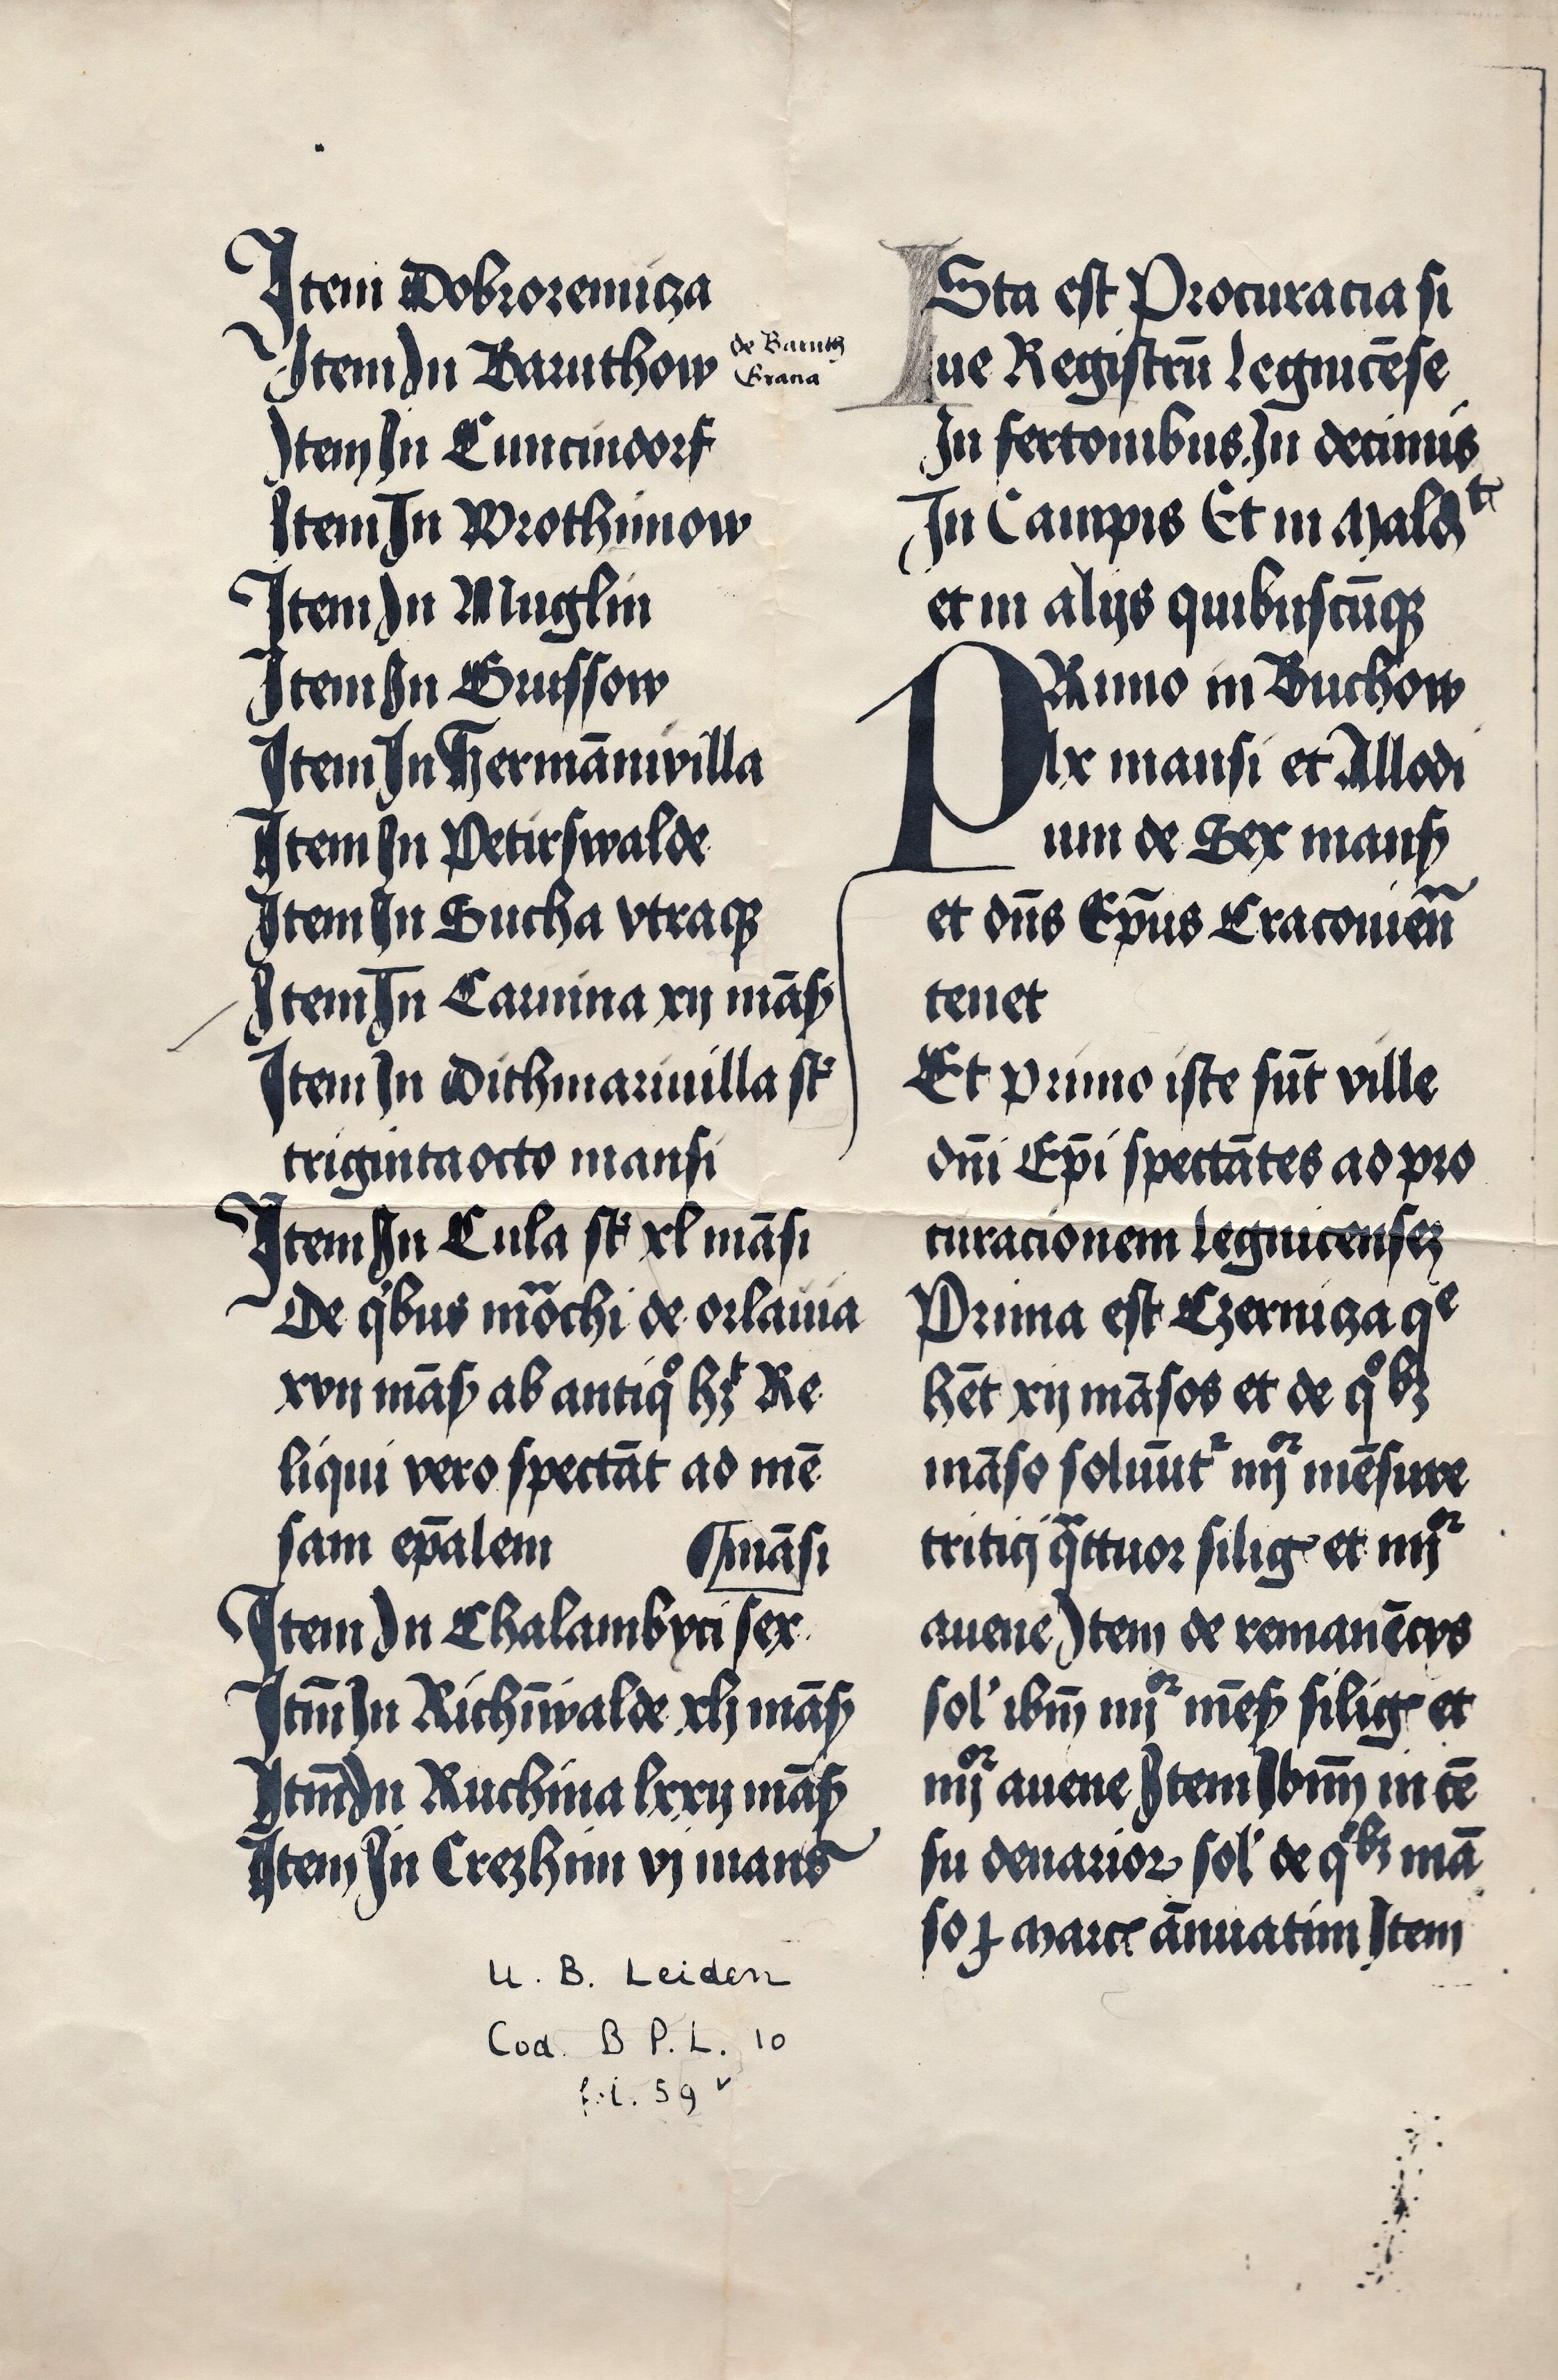 Item Dobroremicza
Item In Baruthow de Baruth
Gracia
Item In Cuncindorf
Item In Wrothimow
Item In Muglin
Item In Grussow
Item In Hermānivilla
Item In Petirswalde
Item In Sucha vtraqꝫ
Item In Carnina xij māsꝭ
Item In Dithmariuilla st
trigintaocto mansi
Item In Cula st xl māsi
De qͥbus mōchi de orlauia
xvij māsꝭ ab antiqͦ hꝫt Re
liqui vero spectāt ad mē
sam ep̄alem māsi
Item In Chalambyci sex
Itm̄ In Richn̄walde xlj māsꝭ
Itm̄ In Ruchina lxxij māsꝭ
Item In Crezhim vj mans
U. B. Leiden
Cod. B P. L. 10
fol. 59 v
ISta est Procuracia si
ue Registrū legnicēse
In fertonibus In decimis
In Campis Et in maldrt
et in alijs quibuscūqꝫ
PRimo in Buchow
lx mansi et Allodi
um de Sex mansꝭ
et dn̄s Ep̄us Cracouien̄
tenet
Et primo iste sūt ville
dn̄i Ep̄i spectātes ad pro
curacionem legnicenseꝫ
Prima est Czernicza qe
hēt xij māsos et de qͦlꝫ
māso soluūtʳ iiijor mēsure
tritici qᵃttuor silig et iiijor
auene Item de remanēcijs
sol' ibm̄ iiijor mēsꝭ silig et
iiijor auene Item Ibm̄ in cē
su denarioꝝ sol' de qͦlꝫ mā
so ꝭ marc ānuatim Item